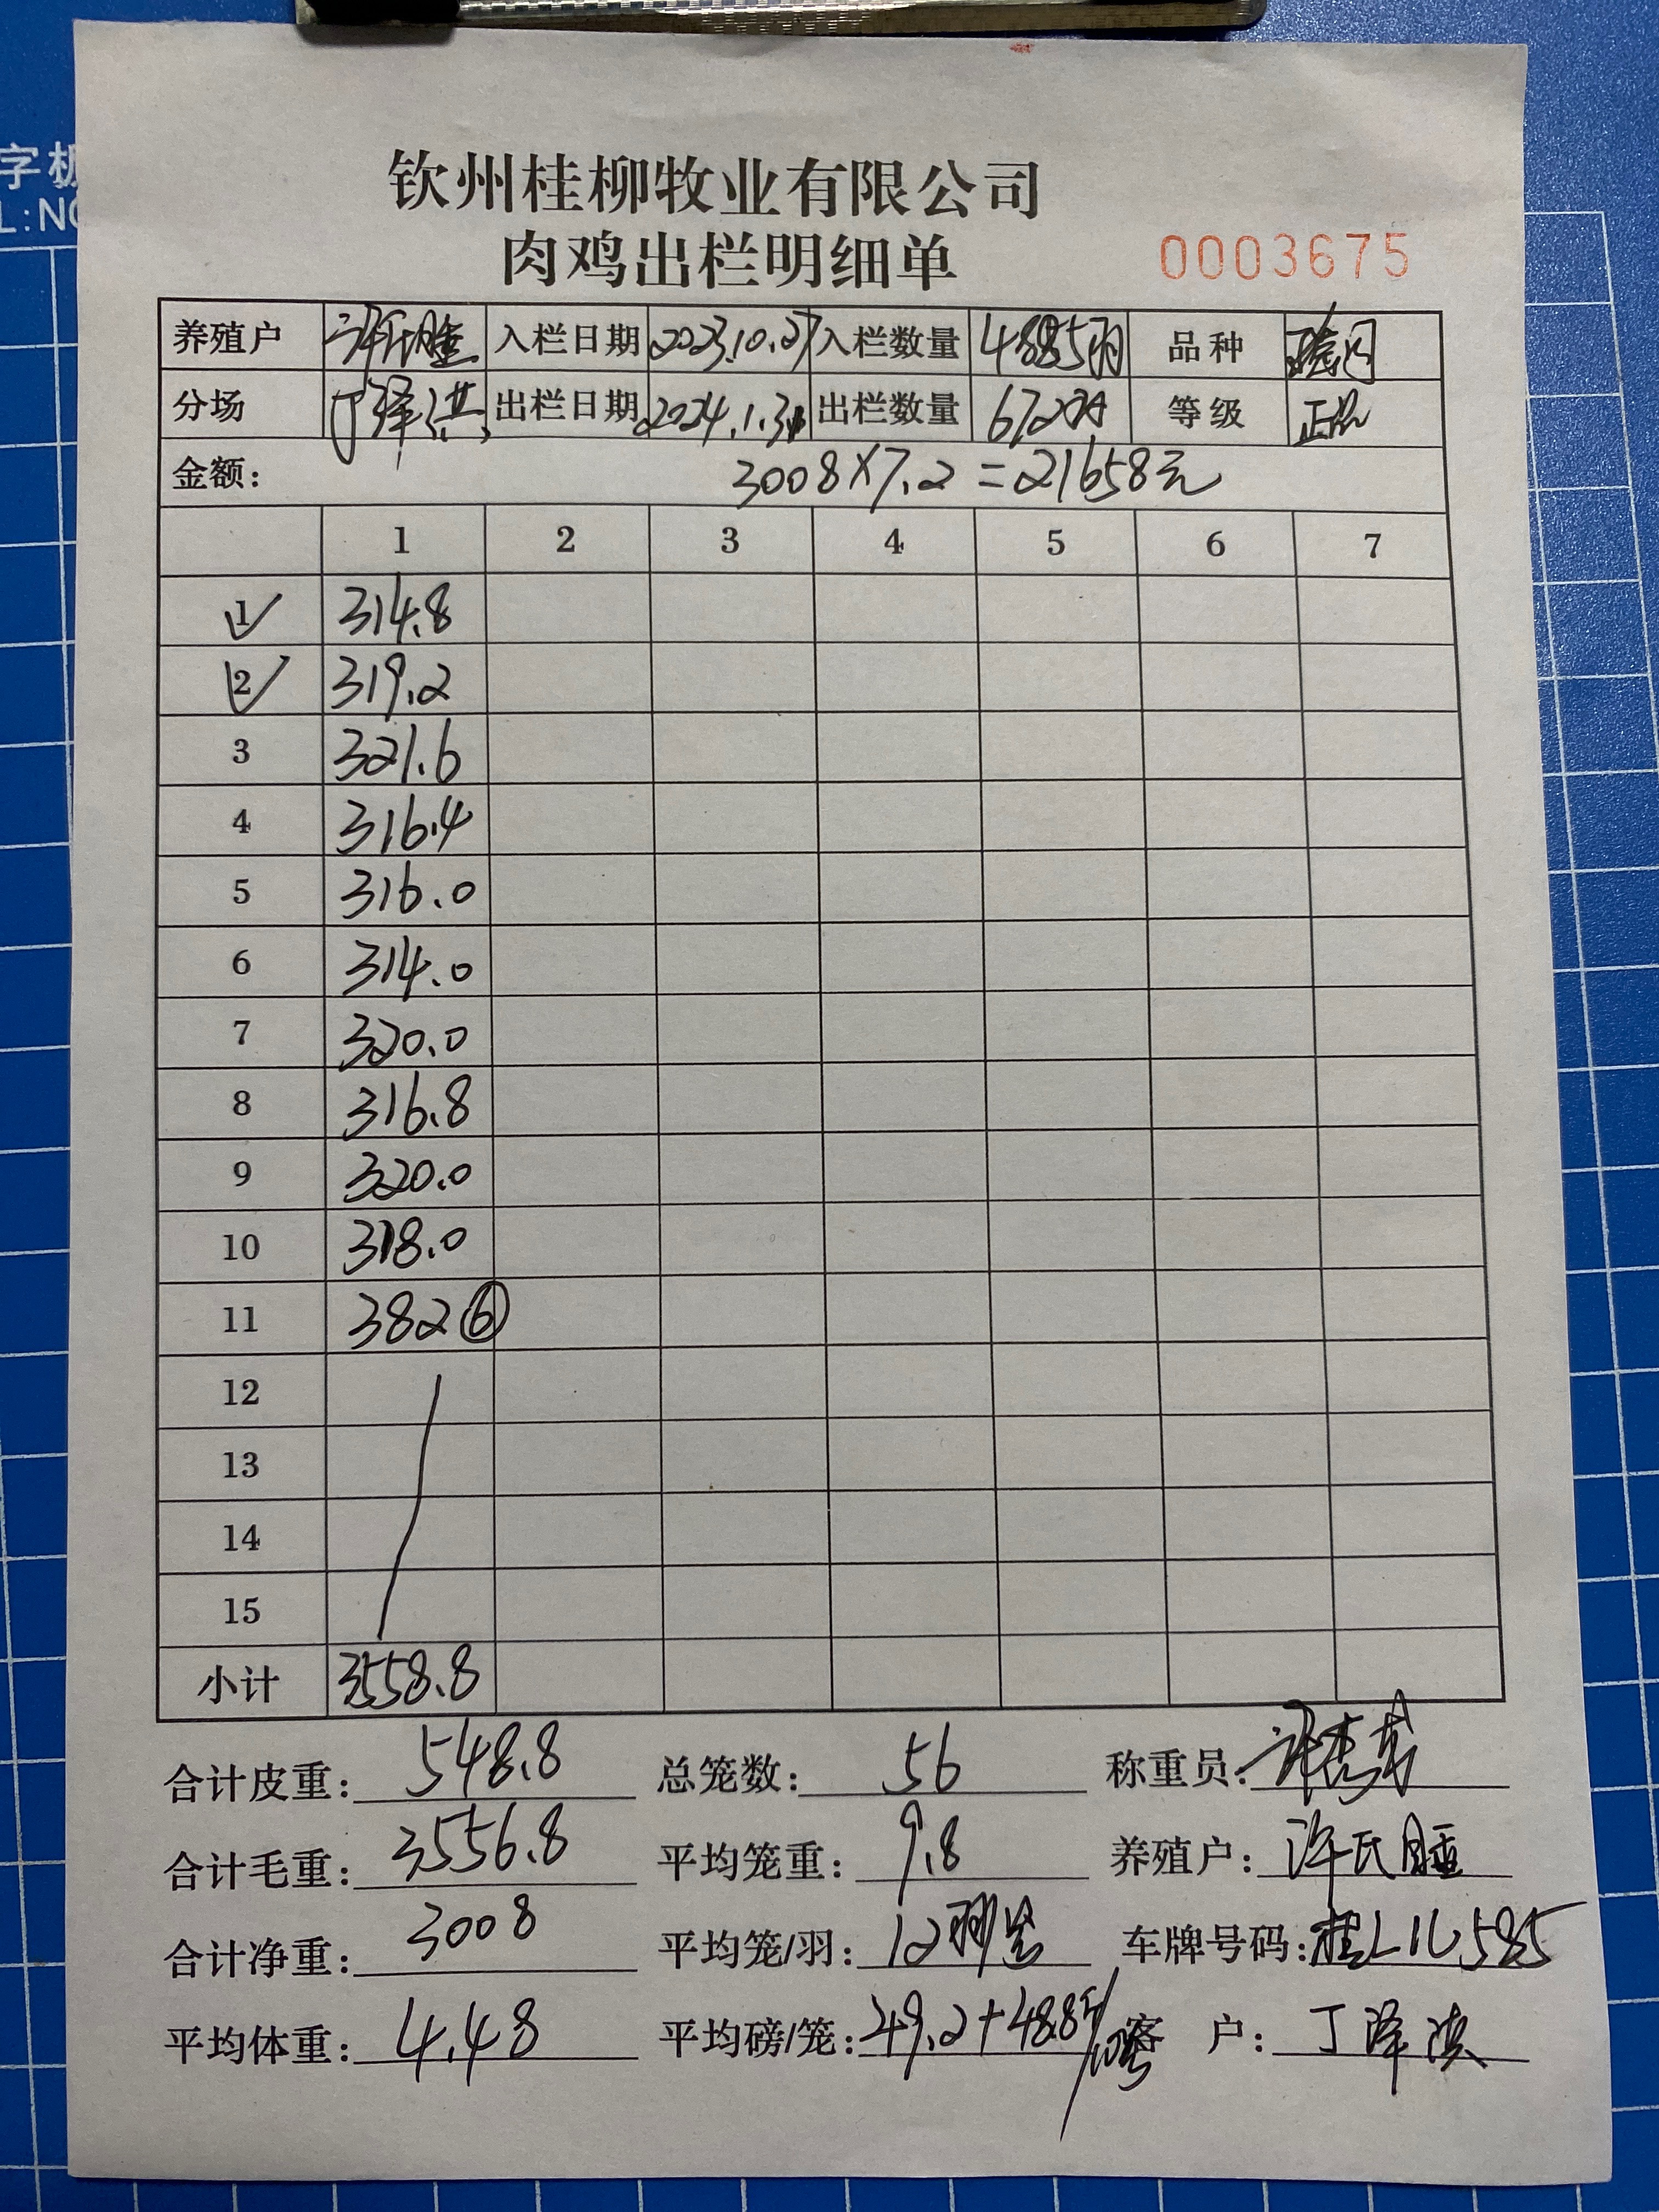 字板
L:NO
钦州桂柳牧业有限公司
肉鸡出栏明细单 0003675
养殖户 许氏腄 入栏日期 2023.10.27 入栏数量 4885羽 品种
分场 丁泽洪 出栏日期 2024.1.31 出栏数量 672羽 等级 正品
金额: 3008×7.2=21658元
1 2 3 4 5 6 7
1 314.8
2 319.2
3 321.6
4 316.4
5 316.0
6 314.0
7 320.0
8 316.8
9 320.0
10 318.0
11 382⑥
12
13
14
15
小计 3558.8
合计皮重: 548.8 总笼数: 56 称重员:
合计毛重: 3556.8 平均笼重: 9.8 养殖户: 许氏腄
合计净重: 3008 平均笼/羽: 12羽/笼 车牌号码: 桂L1U585
平均体重: 4.48 平均磅/笼: 49.2+48.8 客 户: 丁泽洪